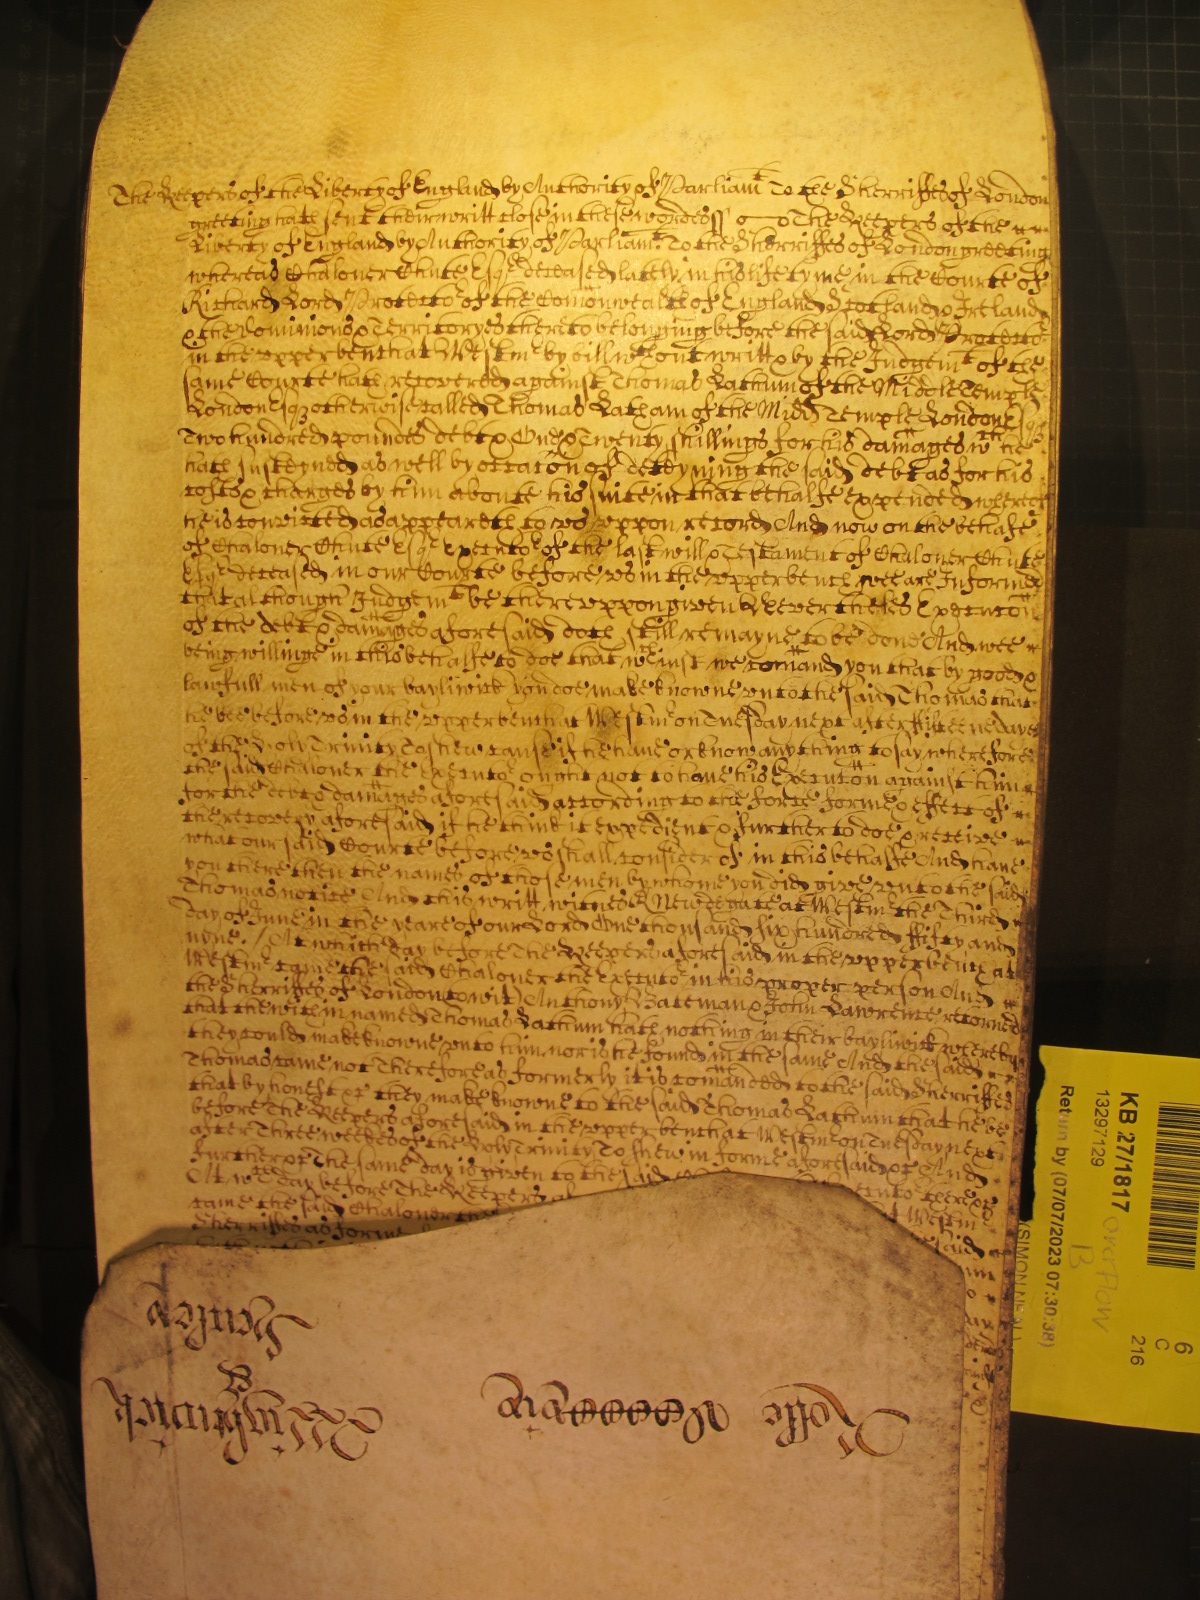 The Keepers of the Liberty of England by Authority of Parliamt To the Sherriffes of London
greeting hath sent their writt close in these wordes ss The Keepers of the
Liberty of England by Authority of Parliamt To the Sherriffes of London greeting
whereas Chaloner Chute Esqr deceased lately in his life tyme in the Courte of
Richard Lord Protector of the Comonwealth of England Scotland & Ireland
& the Dominions & Territoryes thereto belonging before the said Lord Protector
in the upper bench at Westmr by bill wthout writt & by the Judgemt of the
same Courte hath recovered against Thomas Lathum of the Middle Temple
London Esqr otherwise called Thomas Latham of the Midd Temple London Esqr
Two hundred poundes debt & One & Twenty shillings for his damages wch he
hath susteyned as well by occacon of deteyning the said debt as for his
costs & charges by him aboute his suite in that behalfe expended whereof
he is convicted as appeareth to us uppon record And now on the behalfe
of Chaloner Chute Esqr Executor of the last will & Testament of Chaloner Chute
Esqr deceased in our Courte before us in the upper bench wee are Informed
that although Judgemt be thereuppon given Neverthelesse Execucon
of the debt & damages aforesaid doth still remayne to be done And wee
being willinge in this behalfe to doe that wch is just we comand you that by good &
lawfull men of your bayliwick you doe make knowne unto the said Thomas that
he bee before us in the upper bench at Westmr on Tuesday next after fifteene dayes
of the Holy Trinity To shew cause if he have or know any thing to say wherefore
the said Chaloner the executor ought not to have his Execucon against him
for the debt & damages aforesaid according to the force forme & effect of
the recovery aforesaid if he think it expedient & further to doe & receive
what our said Courte before us shall consider of in this behalfe And have
you there then the names of those men by whome you did give unto the said
Thomas notice And this writt witnes R Newdegate at Westmr the Third
day of June in the yeare of our Lord One thousand six hundred fifty and
nyne. / At which day before The Keepers aforesaid in the upper bench at
Westmr came the said Chaloner the Executor in his proper person And
the Sherriffes of London to wit Anthony Bateman & John Lawrence retorned
that the within named Thomas Lathum hath nothing in their bayliwick whereby
they could make knowne unto him nor is he found in the same And the said
Thomas came not Therefore as formerly it is comanded to the said Sherriffes
that by honest &c they make knowne to the said Thomas Lathum that he be
before The Keepers aforesaid in the upper bench at Westmr on Tuesday next
after Three weekes of the Holy Trinity To shew in forme aforesaid &c And
further &c The same day is given to the said
At wch day before The Keepers
came the said Chaloner the Westmr
Sherriffes as forme said
Hensley
&
Wightwick
Rolle
KB 27/1817
13297129
Return by (07/07/2023 07:30:38)
overflow
B
6
C
216